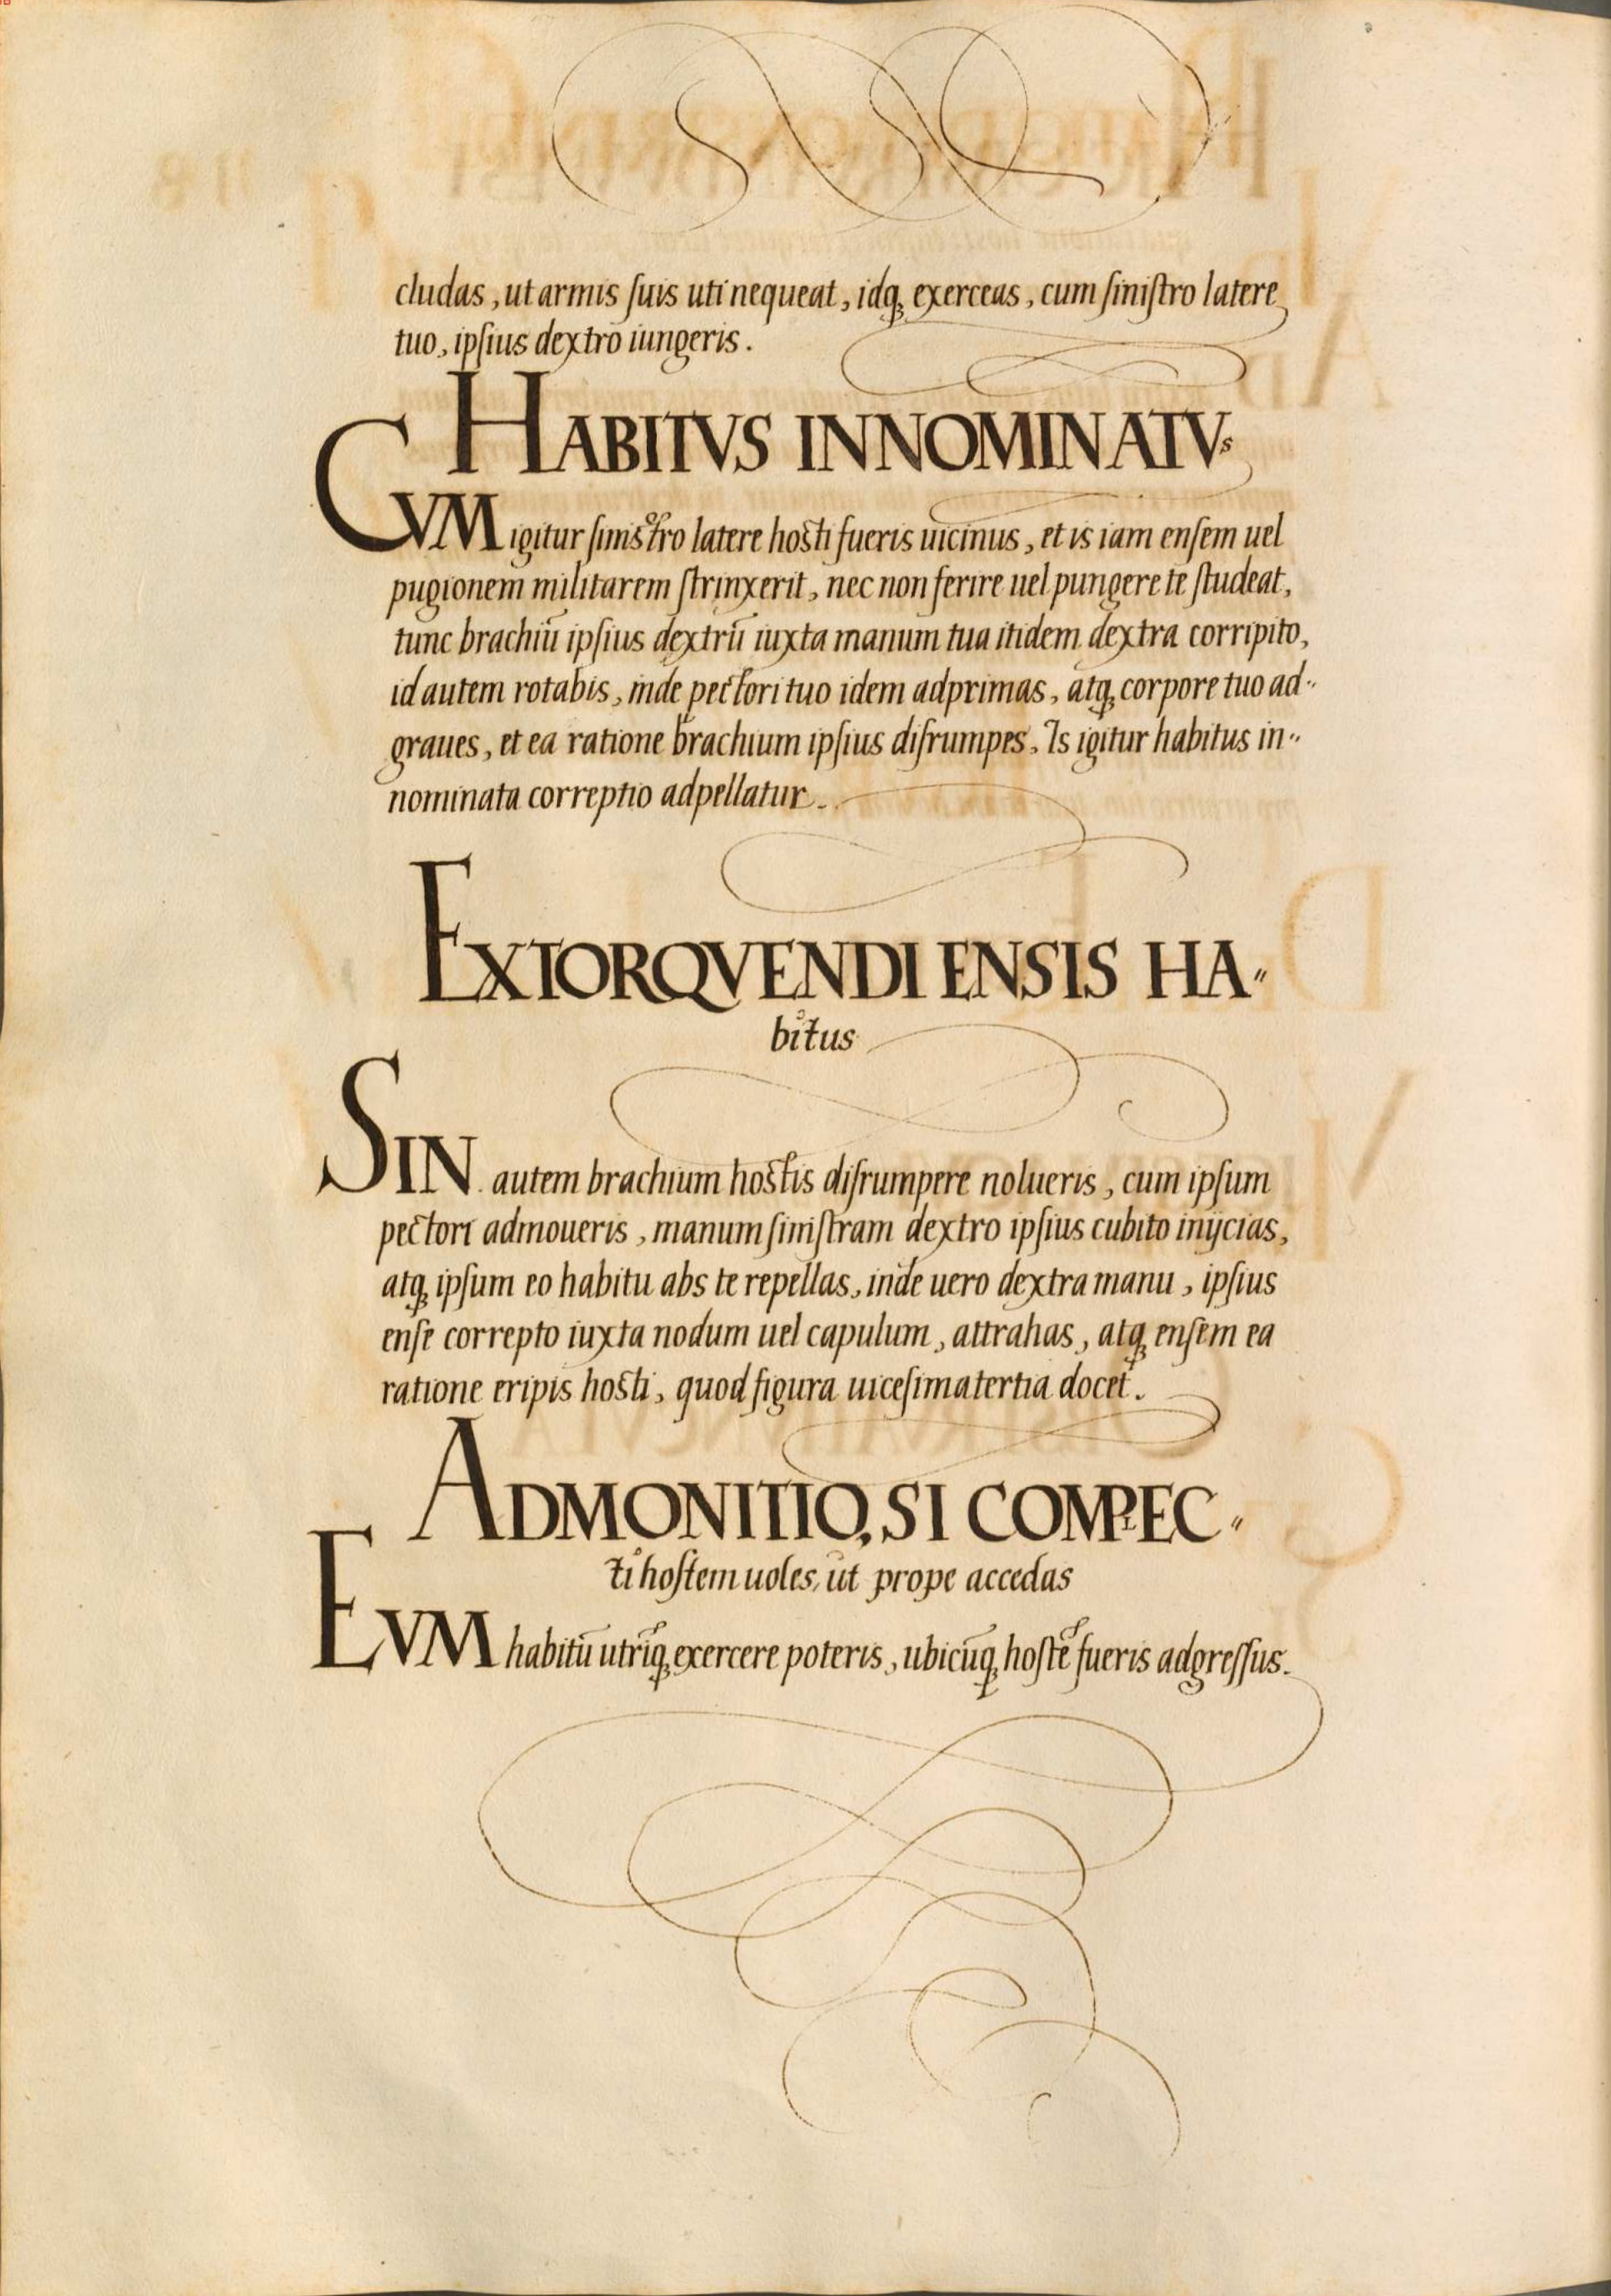 cludas, ut armis ſuis uti nequeat, idq; exerceas, cum ſiniſtro latere
tuo, ipſius dextro iungeris.
HABITVS INNOMINATVs
CVM igitur ſiniſtro latere hoſti fueris uicinus, et is iam enſem uel
pugionem militarem ſtrinxerit, nec non ferire uel pungere te ſtudeat,
tunc brachiū ipſius dextrū iuxta manum tua itidem dextra corripito,
id autem rotabis, inde pectori tuo idem adprimas, atq; corpore tuo ad"
graues, et ea ratione brachium ipſius diſrumpes. Is igitur habitus in"
nominata correptio adpellatur.
EXTORQVENDI ENSIS HA"
bitus
SIN autem brachium hoſtis diſrumpere nolueris, cum ipſum
pectori admoueris, manum ſiniſtram dextro ipſius cubito inijcias,
atq; ipſum eo habitu abs te repellas, inde uero dextra manu, ipſius
enſe correpto iuxta nodum uel capulum, attrahas, atq; enſem ea
ratione eripis hoſti, quod figura uiceſima tertia docet.
ADMONITIO, SI COMPLEC"
ti hoſtem uoles, ut prope accedas
EVM habitū utriq; exercere poteris, ubicūq; hoſtē fueris adgreſſus.